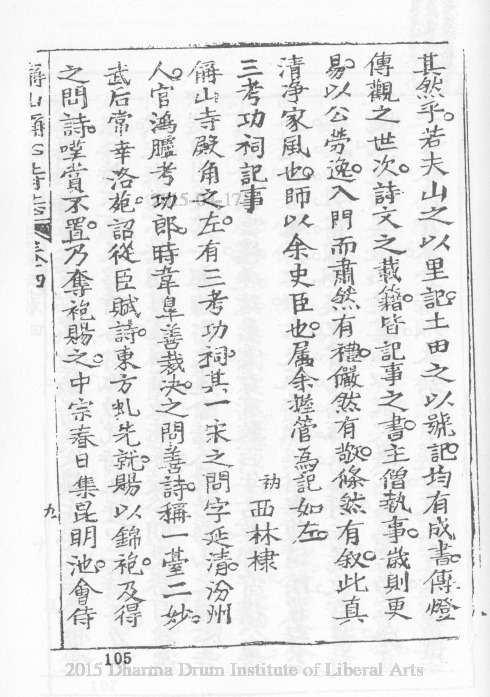 其然乎。若夫山之以里記。土田之以號記。均有成書。傳燈
傳觀之世次。詩文之載籍。皆記事之書。主僧執事。歲則更
易。以公勞逸。入門而肅然有禮。儼然有敬。條然有叙。此真
清淨家風也。師以余史臣也。属余握管為記如左。
西林棣
三考功祠記事
偁山寺殿角之左。有三考功祠。其一宋之問字延清。汾州
人。官鴻臚考功郎。時韋臯善裁決。之問善詩。稱一臺二妙。
武后常幸洛苑。詔從臣賦詩。東方虬先就。賜以錦袍。及得
之問詩。嘆賞不置。乃奪袍賜之。中宗春日集昆明池。會侍
偁山偁心寺志 卷四
九
105
2015 Dharma Drum Institute of Liberal Arts